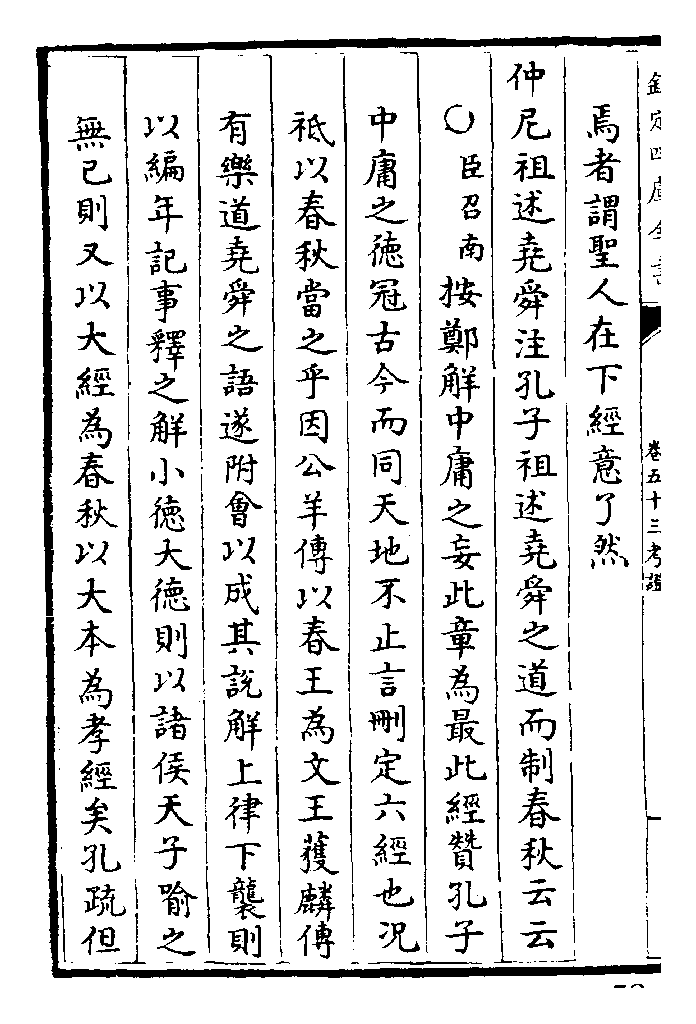 欽定四庫全書
卷五十三考證
焉者謂聖人在下經意了然
仲尼祖述堯舜注孔子祖述堯舜之道而制春秋云云
○臣召南按鄭解中庸之妄此章為最此經贊孔子
中庸之德冠古今而同天地不止言刪定六經也况
祗以春秋當之乎因公羊傳以春王為文王獲麟傳
有樂道堯舜之語遂附會以成其說解上律下襲則
以編年記事釋之解小德大德則以諸侯天子喻之
無已則又以大經為春秋以大本為孝經矣孔疏但